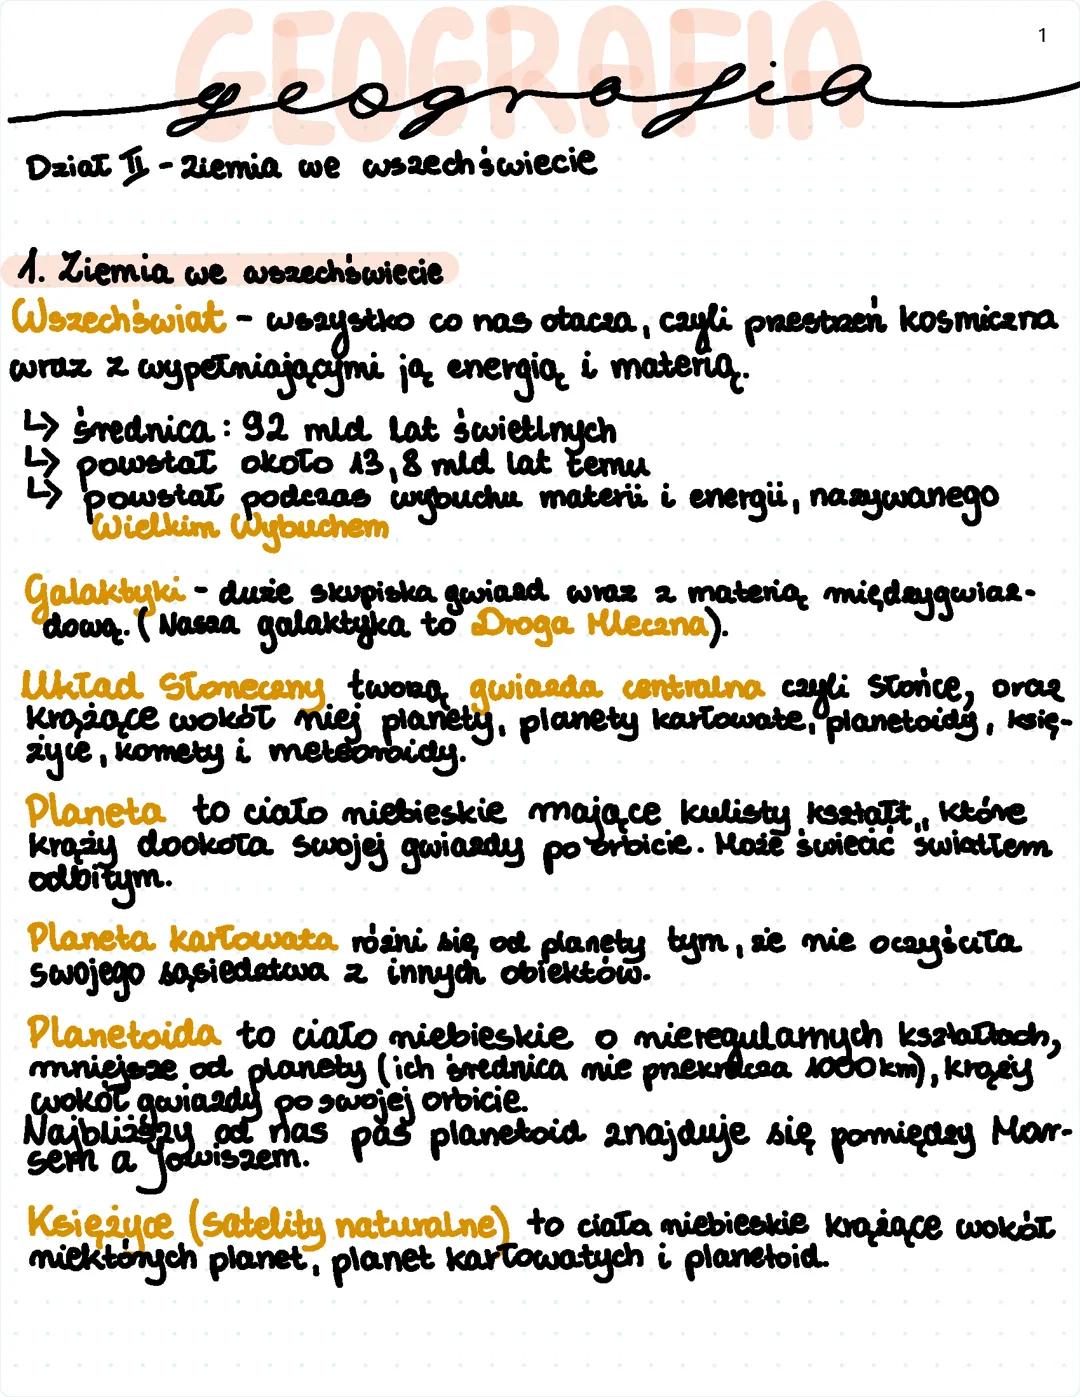 GEOGRAFIA
1
geografia
Dział II - Ziemia we wszechświecie
1. Ziemia we wszechświecie
Wszechświat - wszystko co nas otacza, czyli przestrzeń kosmiczna
wraz z wypełniającymi ją energią i materią.
↳ średnica : 92 mld lat świetlnych
↳ powstał około 13,8 mld lat temu
↳ powstał podczas wybuchu materii i energii, nazywanego
Wielkim Wybuchem
Galaktyki - duże skupiska gwiazd wraz z materią międzygwiaz-
dową. (Nasza galaktyka to Droga Mleczna).
Układ Słoneczny tworzą gwiazda centralna czyli Słońce, oraz
krążące wokół niej planety, planety karłowate, planetoidy, księ-
życe, komety i meteoroidy.
Planeta to ciało niebieskie mające kulisty kształt, które
krąży dookoła swojej gwiazdy po orbicie. Może świecić światłem
odbitym.
Planeta karłowata różni się od planety tym, że nie oczyściła
swojego sąsiedztwa z innych obiektów.
Planetoida to ciało niebieskie o nieregularnych kształtach,
mniejsze od planety (ich średnica nie przekracza 1000 km), krąży
wokół gwiazdy po swojej orbicie.
Najbliższy od nas pas planetoid znajduje się pomiędzy Mar-
sem a Jowiszem.
Księżyce (satelity naturalne) to ciała niebieskie krążące wokół
niektórych planet, planet karłowatych i planetoid.